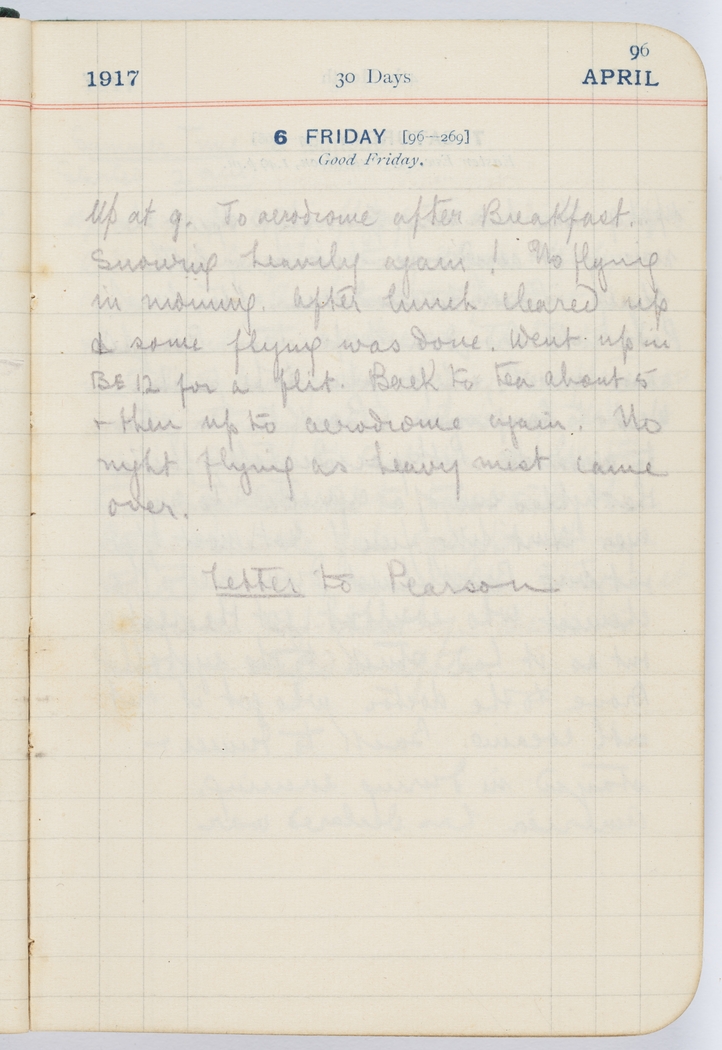 96
1917 30 Days APRIL
6 FRIDAY [96—269]
Good Friday.
Up at 9. To aerodrome after Breakfast.
Snowing heavily again! No flying
in morning. After lunch cleared up
& some flying was done. Went up in
BE 12 for a flit. Back to tea about 5
+ then up to aerodrome again. No
night flying as heavy mist came
over.
Letter to Pearson